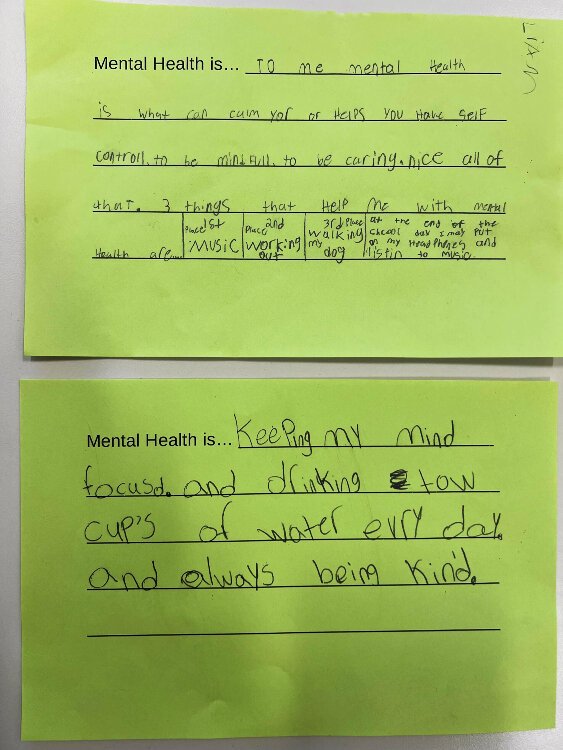 LiAM
Mental Health is... TO me mental Health
is what can calm yor or HElps YOU Have SElF
controll. to be mindfull. to be caring. nice all of
that. 3 things that HElP Me with mental
Health are....
Place 1st
MUSIC
2nd
Place
working
out
3rd Place
walking
my
dog
at the end of the
chcool day I may PUt
on my HeadPhones and
listin to music
Mental Health is... KeePing my mind
focusd. and drinking tow
cup's of water evry day.
and always being kind.